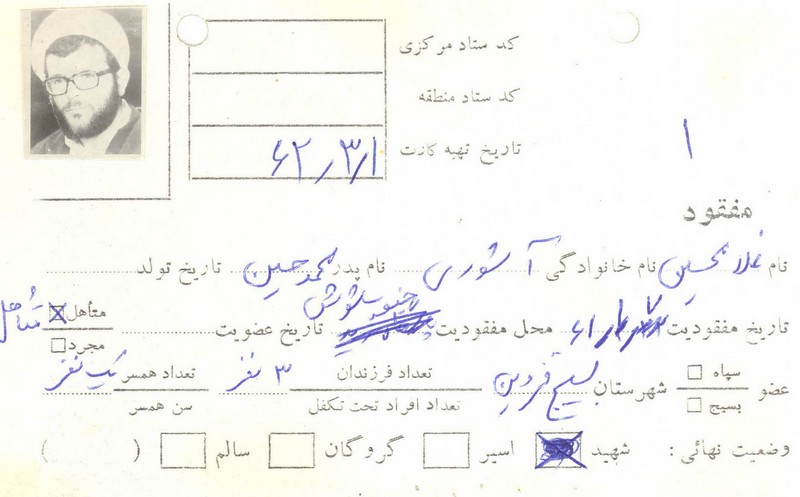 کد ستاد مرکزی
کد ستاد منطقه
تاریخ تهیه کارت ۶۲/۳/۱
۱
مفقود
نام غلامحسین نام خانوادگی آشوری نام پدر محمد حسین تاریخ تولد
تاریخ مفقودیت محل مفقودیت جنوب شوش تاریخ عضویت متأهل متأهل
مجرد
عضو سپاه شهرستان بسیج قزوین تعداد فرزندان ۳ نفر تعداد همسر یک نفر
بسیج تعداد افراد تحت تکفل سن همسر
وضعیت نهائی : شهید اسیر گروگان سالم ( )